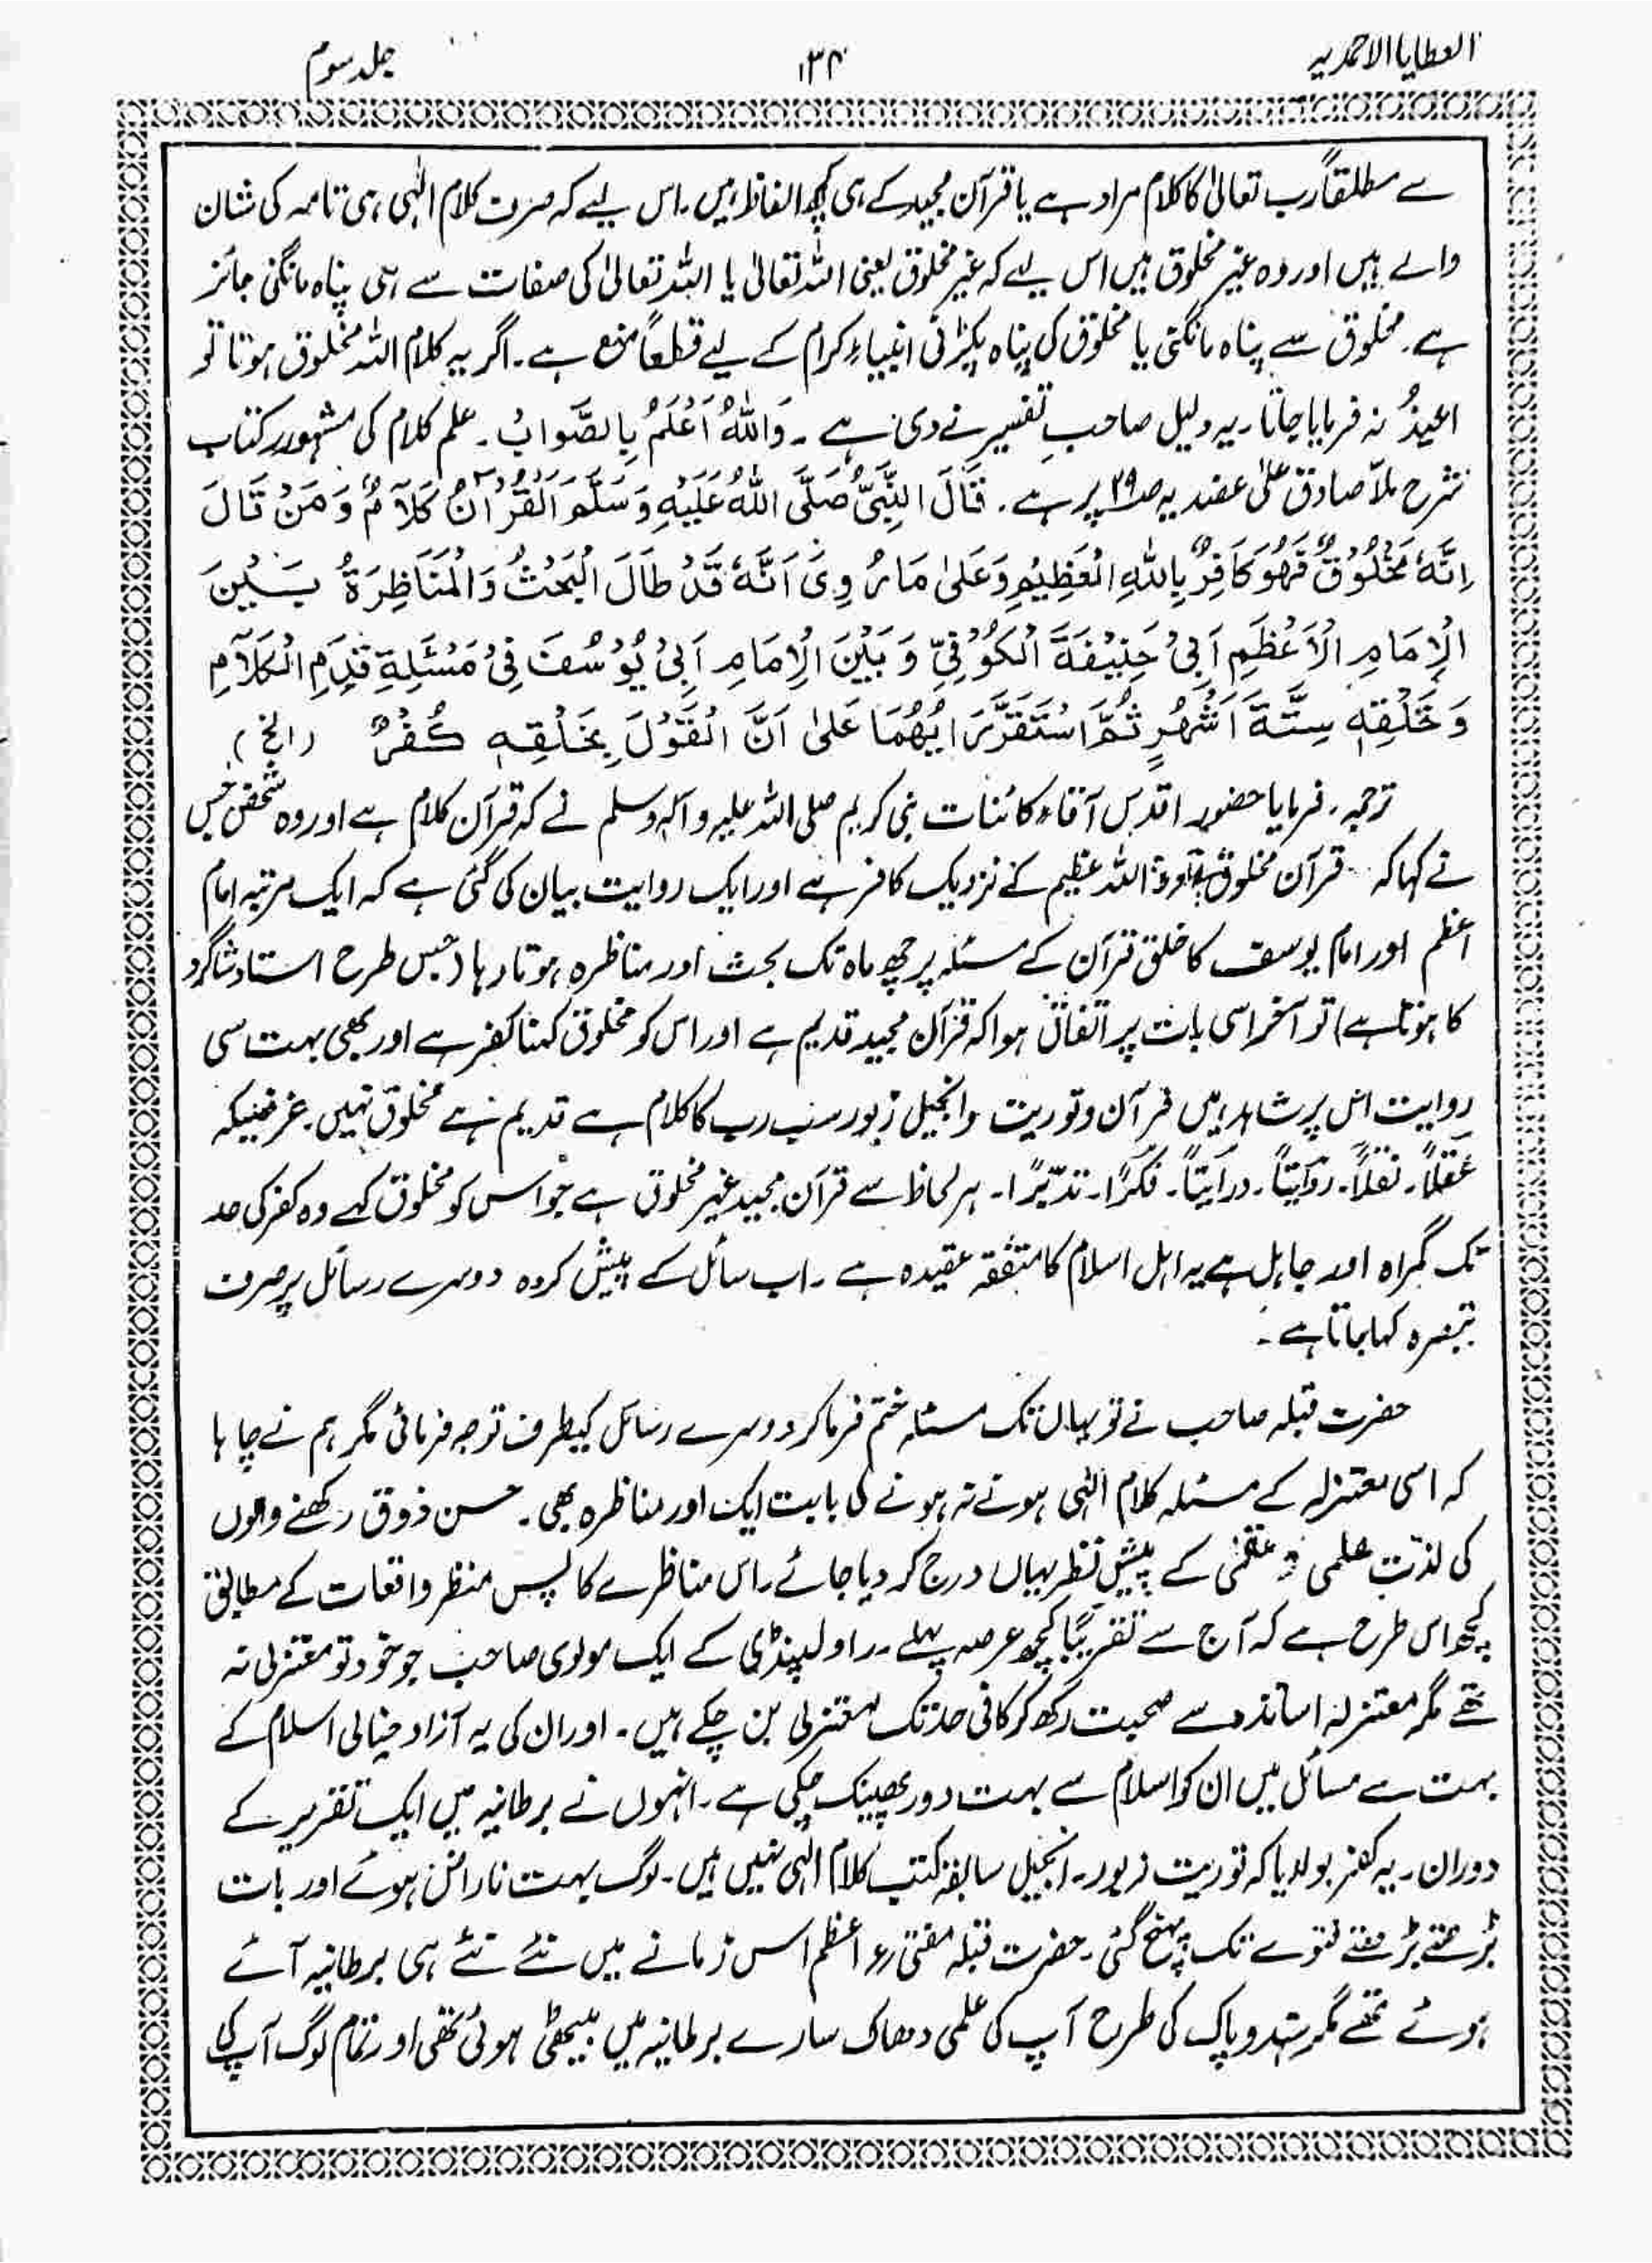 العطایا الاحمدیہ ۱۳۴ جلد سوم
سے مطلقاً رب تعالیٰ کا کلام مراد ہے یا قرآن مجید کے ہی کچھ الفاظ ہیں۔ اس لیے کہ صرف کلام الٰہی ہی تامہ کی شان
والے ہیں اور وہ غیر مخلوق ہیں اس لیے کہ غیر مخلوق یعنی اللہ تعالیٰ یا اللہ تعالیٰ کی صفات سے ہی پناہ مانگنی جائز
ہے۔ مخلوق سے پناہ مانگنی یا مخلوق کی پناہ پکڑنی انبیاءِ کرام کے لیے قطعاً منع ہے۔ اگر یہ کلام اللہ مخلوق ہوتا تو
اعیذُ نہ فرمایا جاتا۔ یہ دلیل صاحبِ تفسیر نے دی ہے۔ وَاللہُ اَعْلَمُ بِالصَّوَابُ۔ علم کلام کی مشہور کتاب
شرح ملاّ صادق علیٰ عضدیہ صہ۲۹ پر ہے۔ قَالَ النَّبِیُّ صَلَّی اللہُ عَلَیْہِ وَسَلَّمَ الْقُرْاٰنُ کَلَامٌ وَمَنْ قَالَ
اِنَّہٗ مَخْلُوْقٌ فَہُوَ کَافِرٌ بِاللہِ الْعَظِیْمِ وَعَلیٰ مَارُوِیَ اَنَّہٗ قَدْ طَالَ الْبَحْثُ وَالْمُنَاظِرَۃُ بَیْنَ
الْاِمَامِ الْاَعْظَمِ اَبِیْ حَنِیْفَۃَ الْکُوْفِیِّ وَبَیْنَ الْاِمَامِ اَبِیْ یُوْسُفَ فِیْ مَسْئَلِۃِ قِدَمِ الْکَلَامِ
وَخَلْقِہٖ سِتَّۃَ اَشْہُرٍ ثُمَّ اسْتَقَرَّ رَایُہُمَا عَلیٰ اَنَّ الْقَوْلَ بِخَلْقِہٖ کُفْرٌ (الخ)
ترجمہ۔ فرمایا حضور اقدس آقاءِ کائنات نبی کریم صلی اللہ علیہ وآلہ وسلم نے کہ قرآن کلام ہے اور وہ شخص جس
نے کہا کہ قرآن مخلوق ہے تو وہ اللہ عظیم کے نزدیک کافر ہے اور ایک روایت بیان کی گئی ہے کہ ایک مرتبہ امام
اعظم اور امام یوسف کا خلق قرآن کے مسئلہ پر چھ ماہ تک بحث اور مناظرہ ہوتا رہا (جس طرح استاد شاگرد
کا ہوتا ہے) تو آخر اسی بات پر اتفاق ہوا کہ قرآن مجید قدیم ہے اور اس کو مخلوق کہنا کفر ہے اور بھی بہت سی
روایت اس پر شاہد ہیں قرآن و توریت و انجیل زبور سب رب کا کلام ہے قدیم ہے مخلوق نہیں۔ غرضیکہ
عقلاً۔ نقلاً۔ روایتاً۔ درایتاً۔ فکراً۔ تدبّرًا۔ ہر لحاظ سے قرآن مجید غیر مخلوق ہے جو اس کو مخلوق کہے وہ کفر کی حد
تک گمراہ اور جاہل ہے یہ اہل اسلام کا متفقہ عقیدہ ہے۔ اب سائل کے پیش کردہ دوسرے رسائل پر صرف
تبصرہ کہا جاتا ہے۔
حضرت قبلہ صاحب نے تو یہاں تک مسئلہ ختم فرما کر دوسرے رسائل کیطرف توجہ فرمائی مگر ہم نے چاہا
کہ اسی معتزلہ کے مسئلہ کلام الٰہی ہونے نہ ہونے کی بابت ایک اور مناظرہ بھی۔ حسن ذوق رکھنے والوں
کی لذّت علمی و عقلی کے پیش نظر یہاں درج کر دیا جائے۔ اس مناظرے کا پس منظر واقعات کے مطابق
کچھ اس طرح ہے کہ آج سے تقریبًا کچھ عرصہ پہلے۔ راولپنڈی کے ایک مولوی صاحب جو خود تو معتزلی نہ
تھے مگر معتزلہ اساتذہ سے صحبت رکھ کر کافی حد تک معتزلی بن چکے ہیں۔ اور ان کی یہ آزاد خیالی اسلام کے
بہت سے مسائل میں ان کو اسلام سے بہت دور پھینک چکی ہے۔ انہوں نے برطانیہ میں ایک تقریر کے
دوران۔ یہ کفر بولدیا کہ توریت زبور۔ انجیل سابقہ کتب کلام الٰہی نہیں ہیں۔ لوگ بہت ناراض ہوئے اور بات
بڑھتے بڑھتے فتوے تک پہنچ گئی۔ حضرت قبلہ مفتیءِ اعظم اس زمانے میں نئے نئے ہی برطانیہ آئے
ہوئے تھے مگر ہندوپاک کی طرح آپ کی علمی دھاک سارے برطانیہ میں بیٹھی ہوئی تھی اور تمام لوگ آپ کی